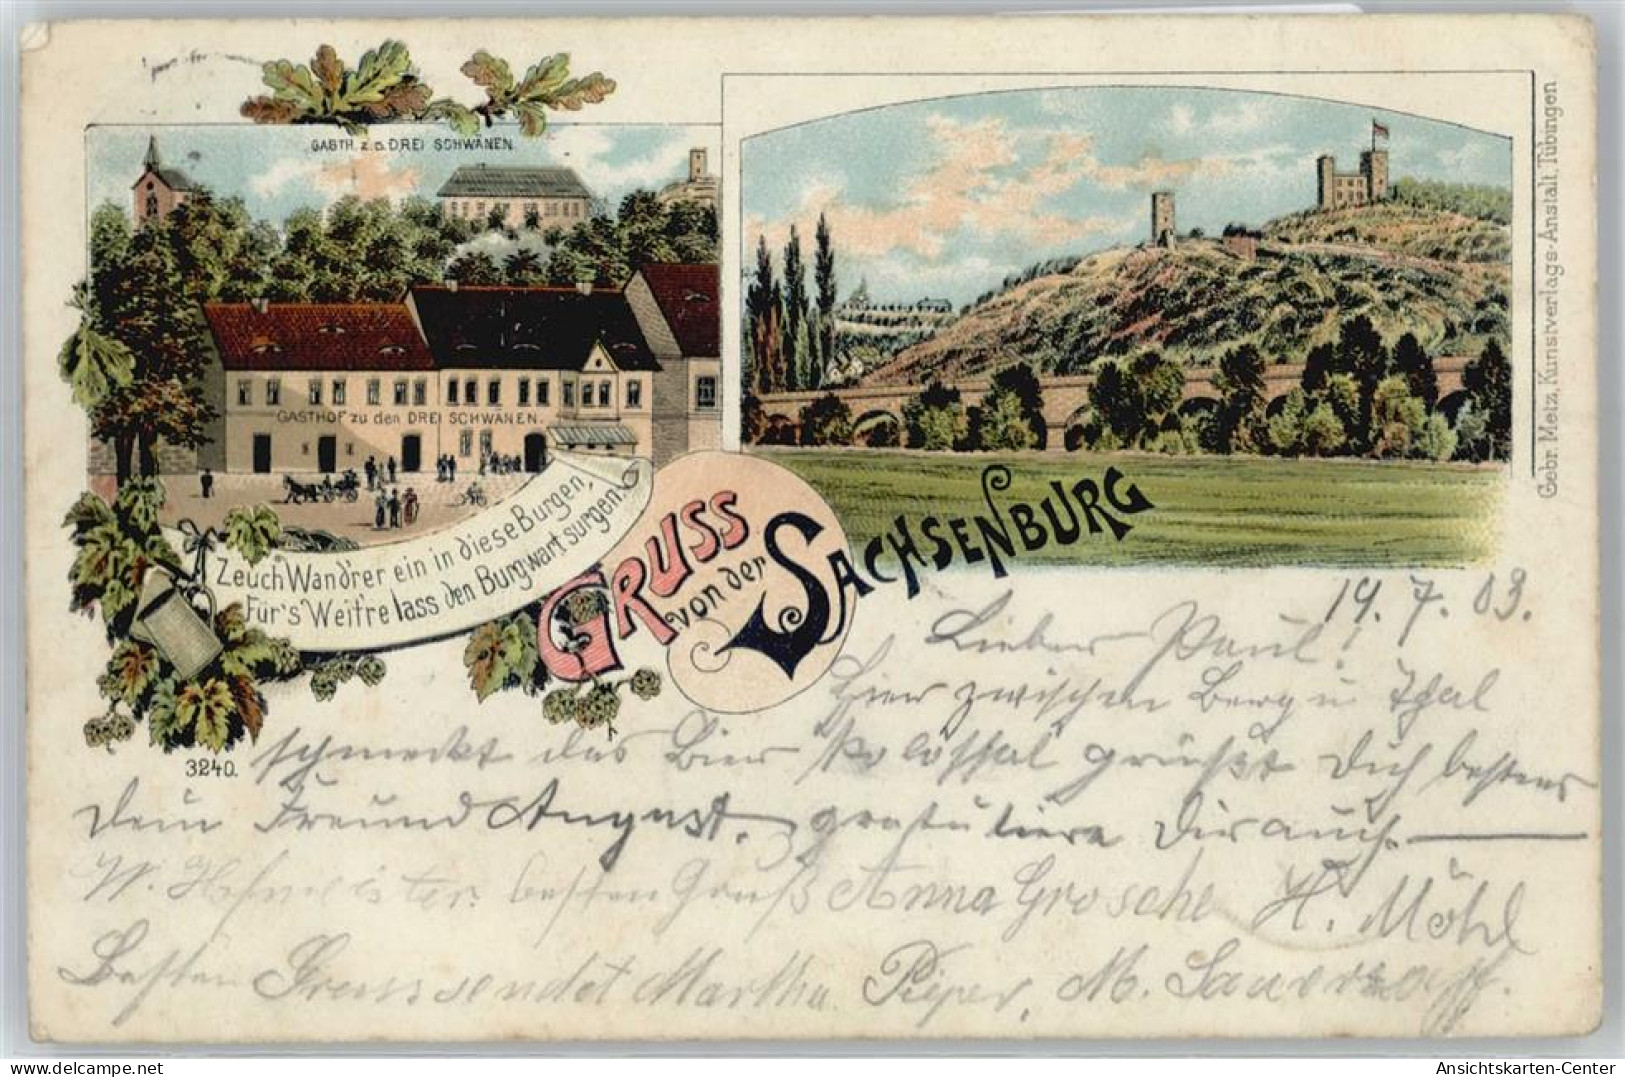 GASTH. z. d. DREI SCHWÄNEN
GASTHOF zu den DREI SCHWÄNEN.
Zeuch Wand'rer ein in diese Burgen,
Für's Weit're lass den Burgwart surgen.
GRUSS
von der
SACHSENBURG
Gebr. Metz, Kunstverlags-Anstalt, Tübingen
3240.
19. 7. 03.
Lieber Paul!
Hier zwischen Berg u Thal
schmeckt das Bier kolossal grüßt Dich bestens
dein Freund August. gratuliere Dir auch.
W. Hofmeister. besten Gruß Anna Grosche H. Möhl
Besten Gruss sendet Martha Pieper, M.
Ansichtskarten-Center.com
Ansichtskarten-Center